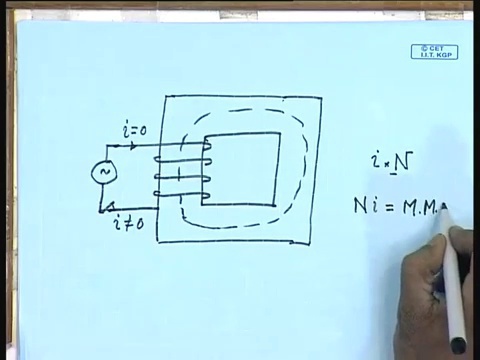 © CET
I.I.T. KGP
i=0
~
i≠0
i × N
N i = M.M.